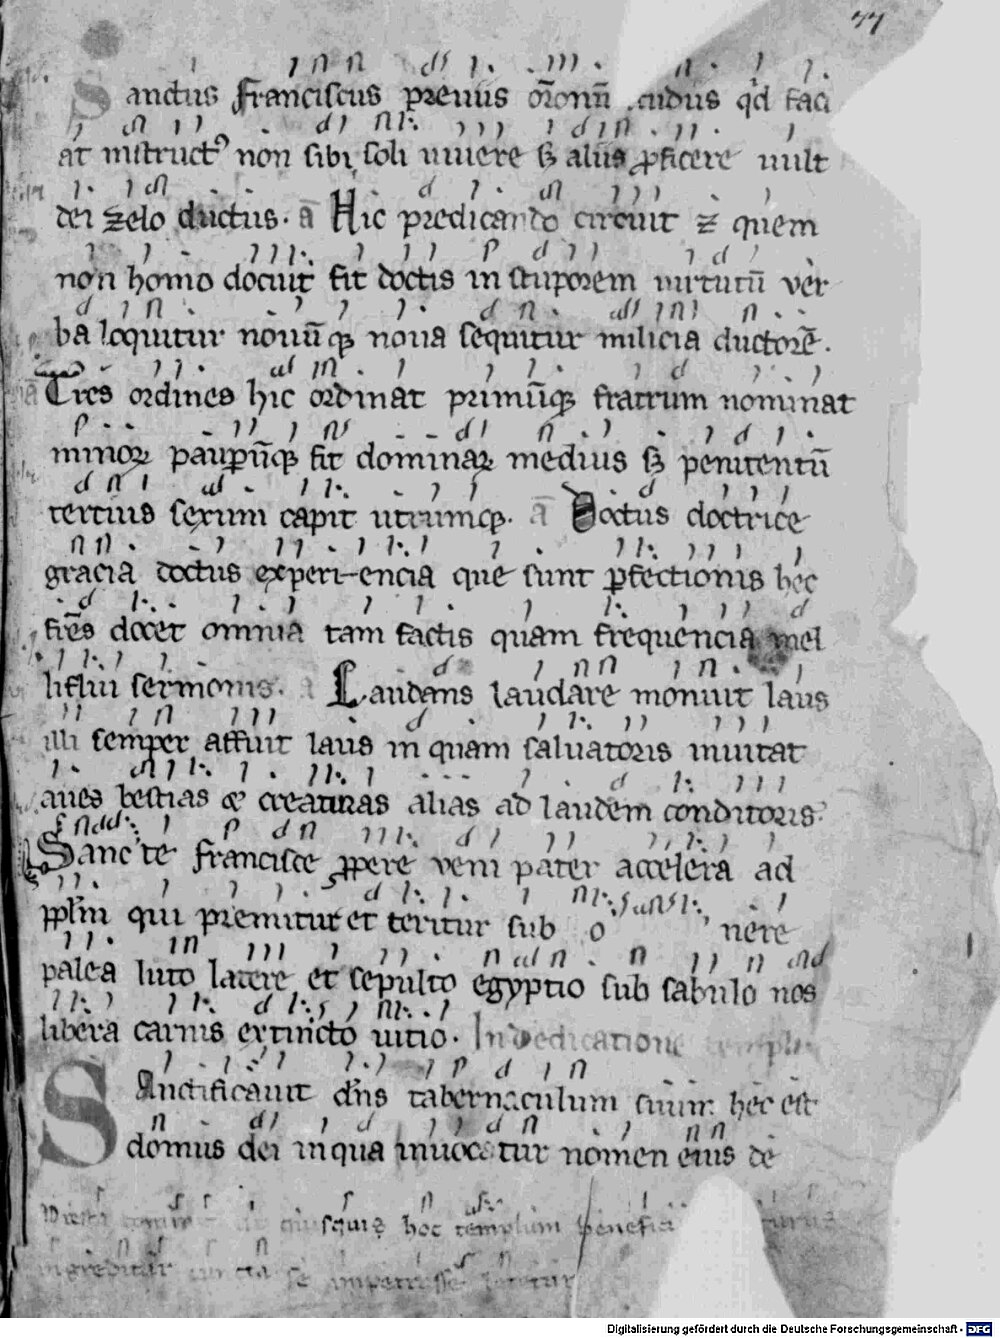 77
Sanctus franciscus preuiis or̄onū cudus qd faci
at instruct⁹ non sibi soli uiuere sꝫ aliis ꝓficere uult
dei zelo ductus. a̅ Hic predicando circuit ⁊ quem
non homo docuit fit doctis in stuporem uirtutū ver
ba loquitur nouūqꝫ noua sequitur milicia ductorē.
a̅ Tres ordines hic ordinat primūqꝫ fratrum nominat
minoꝝ pauꝑūqꝫ fit dominaꝝ medius sꝫ penitentū
tercius sexum capit utrumqꝫ. a̅ Doctus doctrice
gracia doctus experiencia que sunt ꝑfectionis hec
fr̄es docet omnia tam factis quam frequencia mel
liflui sermonis. a̅ Laudans laudare monuit laus
illi semper affuit laus in quam saluatoris inuitat
aues bestias ⁊ creaturas alias ad laudem conditoris.
Sancte francisce ꝓpere veni pater accelera ad
ppl̄m qui premitur et teritur sub o nere
palea luto latere et sepulto egyptio sub sabulo nos
libera carnis extincto uitio. In dedicatione templi
Sanctificauit dn̄s tabernaculum suum hec est
domus dei in qua inuocatur nomen eius de
hec templum
ingreditur cuncta se impetrasse letetur
Digitalisierung gefördert durch die Deutsche Forschungsgemeinschaft - DFG